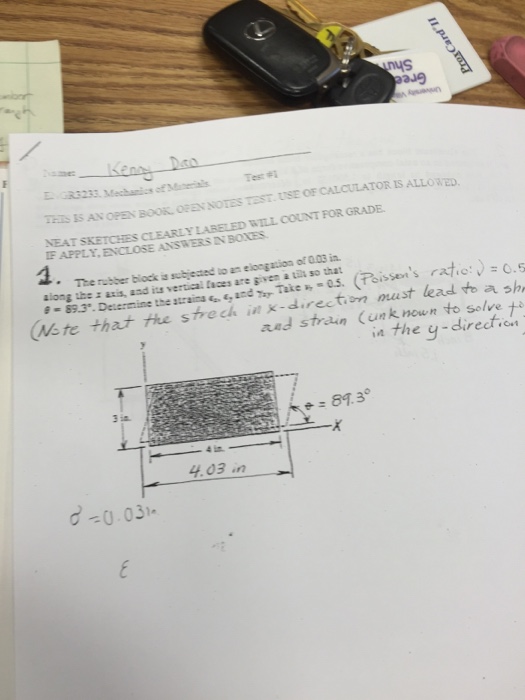 ProxCard II
University Villa
Gree
Shut
Name: Kenny Dao
ENGR3233. Mechanics of Materials Test #1
THIS IS AN OPEN BOOK, OPEN NOTES TEST. USE OF CALCULATOR IS ALLOWED.
NEAT SKETCHES CLEARLY LABELED WILL COUNT FOR GRADE.
IF APPLY, ENCLOSE ANSWERS IN BOXES.
1. The rubber block is subjected to an elongation of 0.03 in.
along the x axis, and its vertical faces are given a tilt so that
θ = 89.3°. Determine the strains εx, εy and γxy. Take νr = 0.5. (Poisson's ratio: ν = 0.5
(Note that the strech in x-direction must lead to a shr
and strain (unknown to solve f
in the y-direction
y
3 in.
θ = 89.3°
x
4 in.
4.03 in
δ = 0.03in
ε